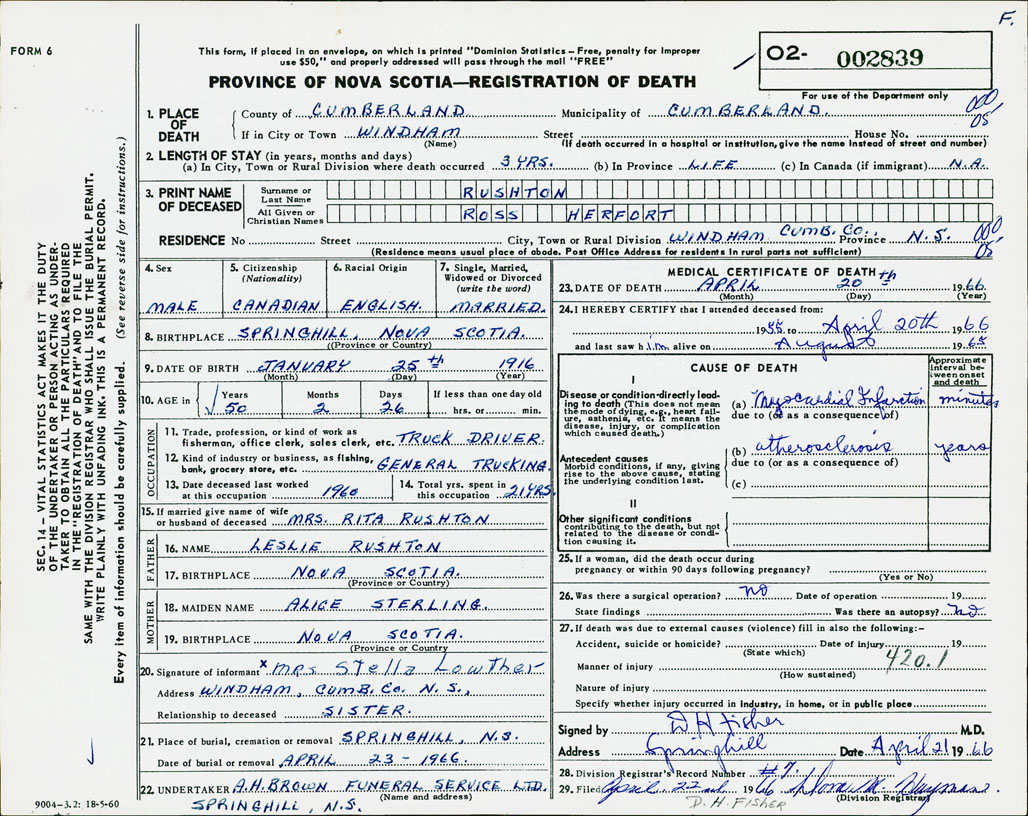 F.
FORM 6
This form, if placed in an envelope, on which is printed "Dominion Statistics – Free, penalty for improper
use $50," and properly addressed will pass through the mail "FREE"
O2- 002839
For use of the Department only
PROVINCE OF NOVA SCOTIA—REGISTRATION OF DEATH
SEC. 14 – VITAL STATISTICS ACT MAKES IT THE DUTY
OF THE UNDERTAKER OR PERSON ACTING AS UNDER-
TAKER TO OBTAIN ALL THE PARTICULARS REQUIRED
IN THE "REGISTRATION OF DEATH" AND TO FILE THE
SAME WITH THE DIVISION REGISTRAR WHO SHALL ISSUE THE BURIAL PERMIT.
WRITE PLAINLY WITH UNFADING INK. THIS IS A PERMANENT RECORD.
Every item of information should be carefully supplied. (See reverse side for instructions.)
1. PLACE OF DEATH
County of CUMBERLAND Municipality of CUMBERLAND.
000 05
If in City or Town WINDHAM Street House No.
(Name) (If death occurred in a hospital or institution, give the name instead of street and number)
2. LENGTH OF STAY (in years, months and days)
(a) In City, Town or Rural Division where death occurred 3 YRS. (b) In Province LIFE (c) In Canada (if immigrant) N.A.
3. PRINT NAME OF DECEASED
Surname or Last Name RUSHTON
All Given or Christian Names ROSS HERFORT
RESIDENCE No Street City, Town or Rural Division WINDHAM CUMB. CO., Province N.S. 000 05
(Residence means usual place of abode. Post Office Address for residents in rural parts not sufficient)
4. Sex MALE
5. Citizenship (Nationality) CANADIAN
6. Racial Origin ENGLISH.
7. Single, Married, Widowed or Divorced (write the word) MARRIED.
8. BIRTHPLACE SPRINGHILL, NOVA SCOTIA.
(Province or Country)
9. DATE OF BIRTH JANUARY 25th 1916
(Month) (Day) (Year)
10. AGE in Years Months Days If less than one day old
√ 50 2 26 hrs. or min.
OCCUPATION
11. Trade, profession, or kind of work as
fisherman, office clerk, sales clerk, etc. TRUCK DRIVER.
12. Kind of industry or business, as fishing,
bank, grocery store, etc. GENERAL TRUCKING.
13. Date deceased last worked at this occupation 1960
14. Total yrs. spent in this occupation 21 YRS.
15. If married give name of wife
or husband of deceased MRS. RITA RUSHTON
FATHER
16. NAME LESLIE RUSHTON
17. BIRTHPLACE NOVA SCOTIA.
(Province or Country)
MOTHER
18. MAIDEN NAME ALICE STERLING.
19. BIRTHPLACE NOVA SCOTIA.
(Province or Country
20. Signature of informant x Mrs. Stella Lowther
Address WINDHAM, CUMB. CO. N.S.,
Relationship to deceased SISTER.
21. Place of burial, cremation or removal SPRINGHILL, N.S.
Date of burial or removal APRIL 23 - 1966.
22. UNDERTAKER A.H. BROWN FUNERAL SERVICE LTD.
(Name and address)
SPRINGHILL, N.S.
9004-3.2: 18-5-60
MEDICAL CERTIFICATE OF DEATH
23. DATE OF DEATH APRIL 20th 1966.
(Month) (Day) (Year)
24. I HEREBY CERTIFY that I attended deceased from:
to April 20th 1966
and last saw him alive on August 1965
CAUSE OF DEATH
Approximate interval between onset and death
I
Disease or condition directly lead-
ing to death (This does not mean
the mode of dying, e.g., heart fail-
ure, asthenia, etc. It means the
disease, injury, or complication
which caused death.)
(a) Myocardial Infarction minutes
due to (or as a consequence of)
Antecedent causes
Morbid conditions, if any, giving
rise to the above cause, stating
the underlying condition last.
(b) atherosclerosis years
due to (or as a consequence of)
(c)
II
Other significant conditions
contributing to the death, but not
related to the disease or condi-
tion causing it.
25. If a woman, did the death occur during
pregnancy or within 90 days following pregnancy?
(Yes or No)
26. Was there a surgical operation? no Date of operation 19
State findings Was there an autopsy? no
27. If death was due to external causes (violence) fill in also the following:—
Accident, suicide or homicide? Date of injury 19
(State which)
420.1
Manner of injury
(How sustained)
Nature of injury
Specify whether injury occurred in industry, in home, or in public place
Signed by D H Fisher M.D.
Address Springhill Date April 21 1966
28. Division Registrar's Record Number #7.
29. Filed April 22nd 1966
(Division Registrar)
D. H. FISHER